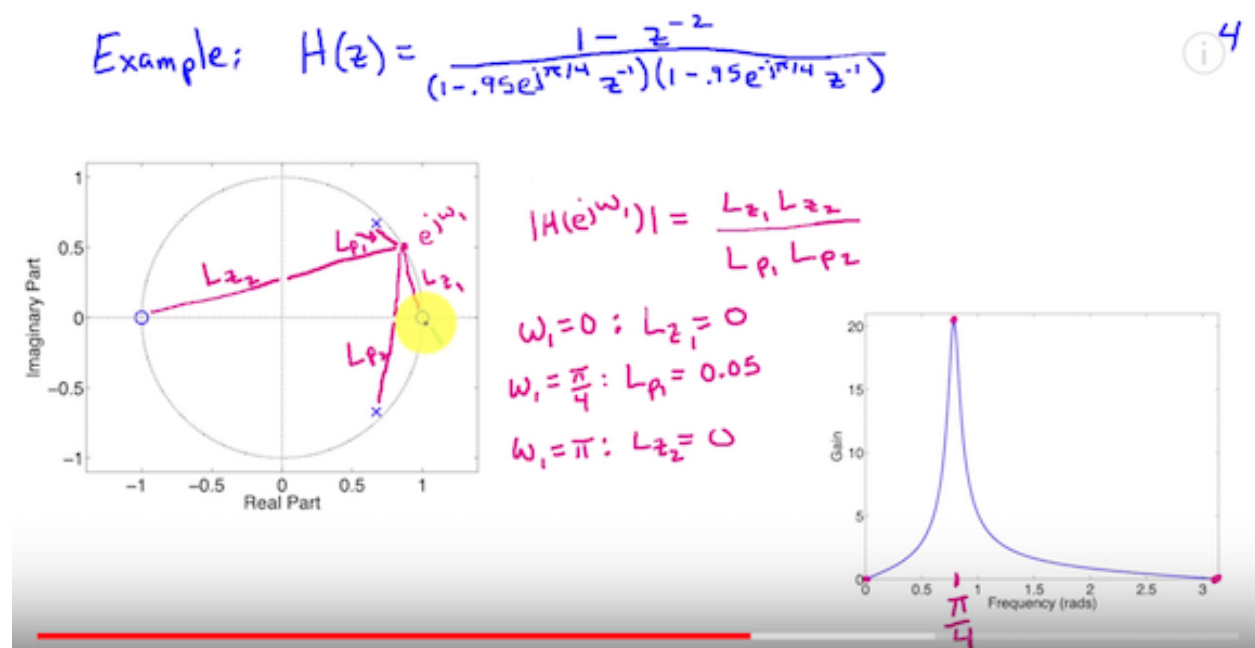 Example: H(z) = 1 - z^-2 / (1-.95e^jπ/4 z^-1)(1-.95e^-jπ/4 z^-1)
i
4
1
0.5
0
−0.5
−1
Imaginary Part
−1 −0.5 0 0.5 1
Real Part
Lz2
Lp1
e^jω1
Lz1
Lp2
|H(e^jω1)| = Lz1 Lz2 / Lp1 Lp2
ω1=0: Lz1=0
ω1=π/4: Lp1=0.05
ω1=π: Lz2=0
20
15
10
5
0
Gain
0 0.5 1 1.5 2 2.5 3
Frequency (rads)
π/4